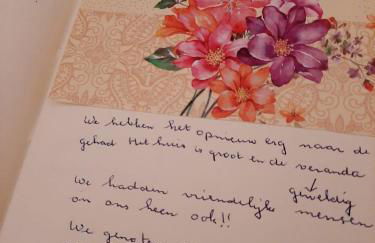 We hebben het opnieuw erg naar de
gehad Het huis is groot en de veranda
geweldig
We hadden vriendelijke mensen
om ons heen ook!!
We genote